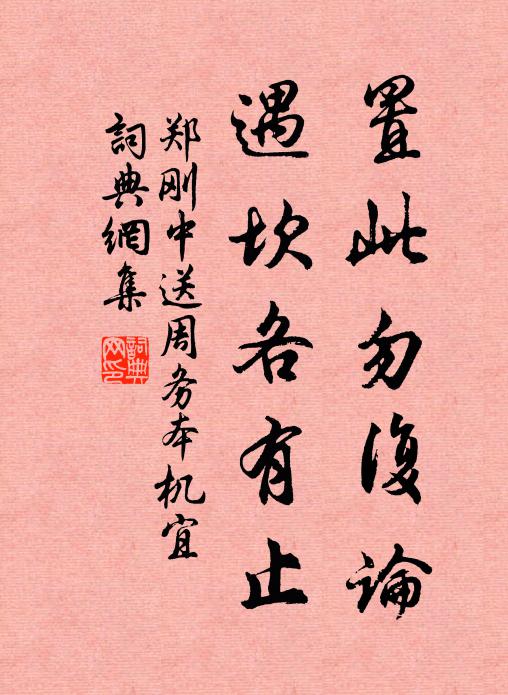 置此勿復論
遇坎各有止
郑刚中送周务本机宜
詞典網集
詞典網印